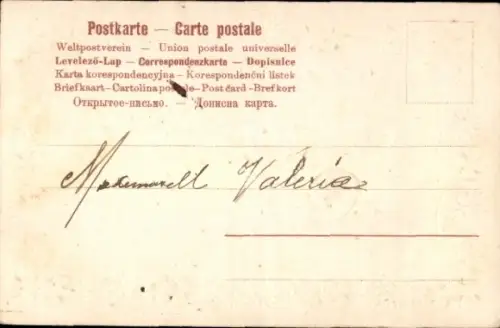 Postkarte — Carte postale
Weltpostverein — Union postale universelle
Levelező-Lap — Correspondenzkarte — Dopisnice
Karta korespondencyjna — Korespondenční lístek
Briefkaart — Cartolina postale — Post card — Brefkort
Открытое-письмо. — Дописна карта.
Valeria